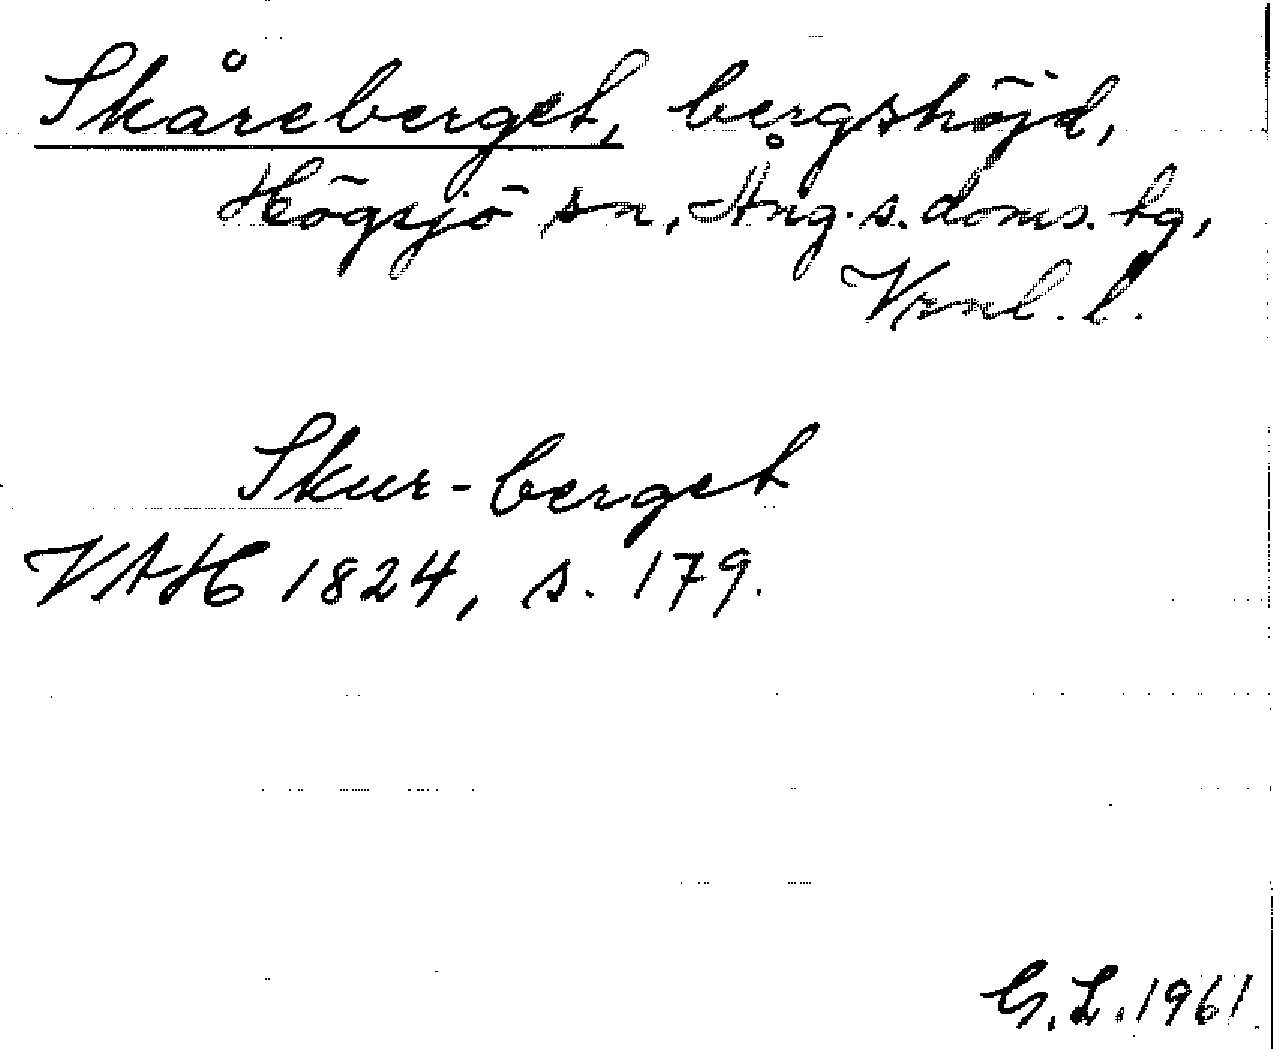 Skåreberget, bergshöjd,
Högsjö sn, Ång. s. doms. tg,
Vrnl. l.
Skur-berget
VAH 1824, s. 179.
G. L. 1961.